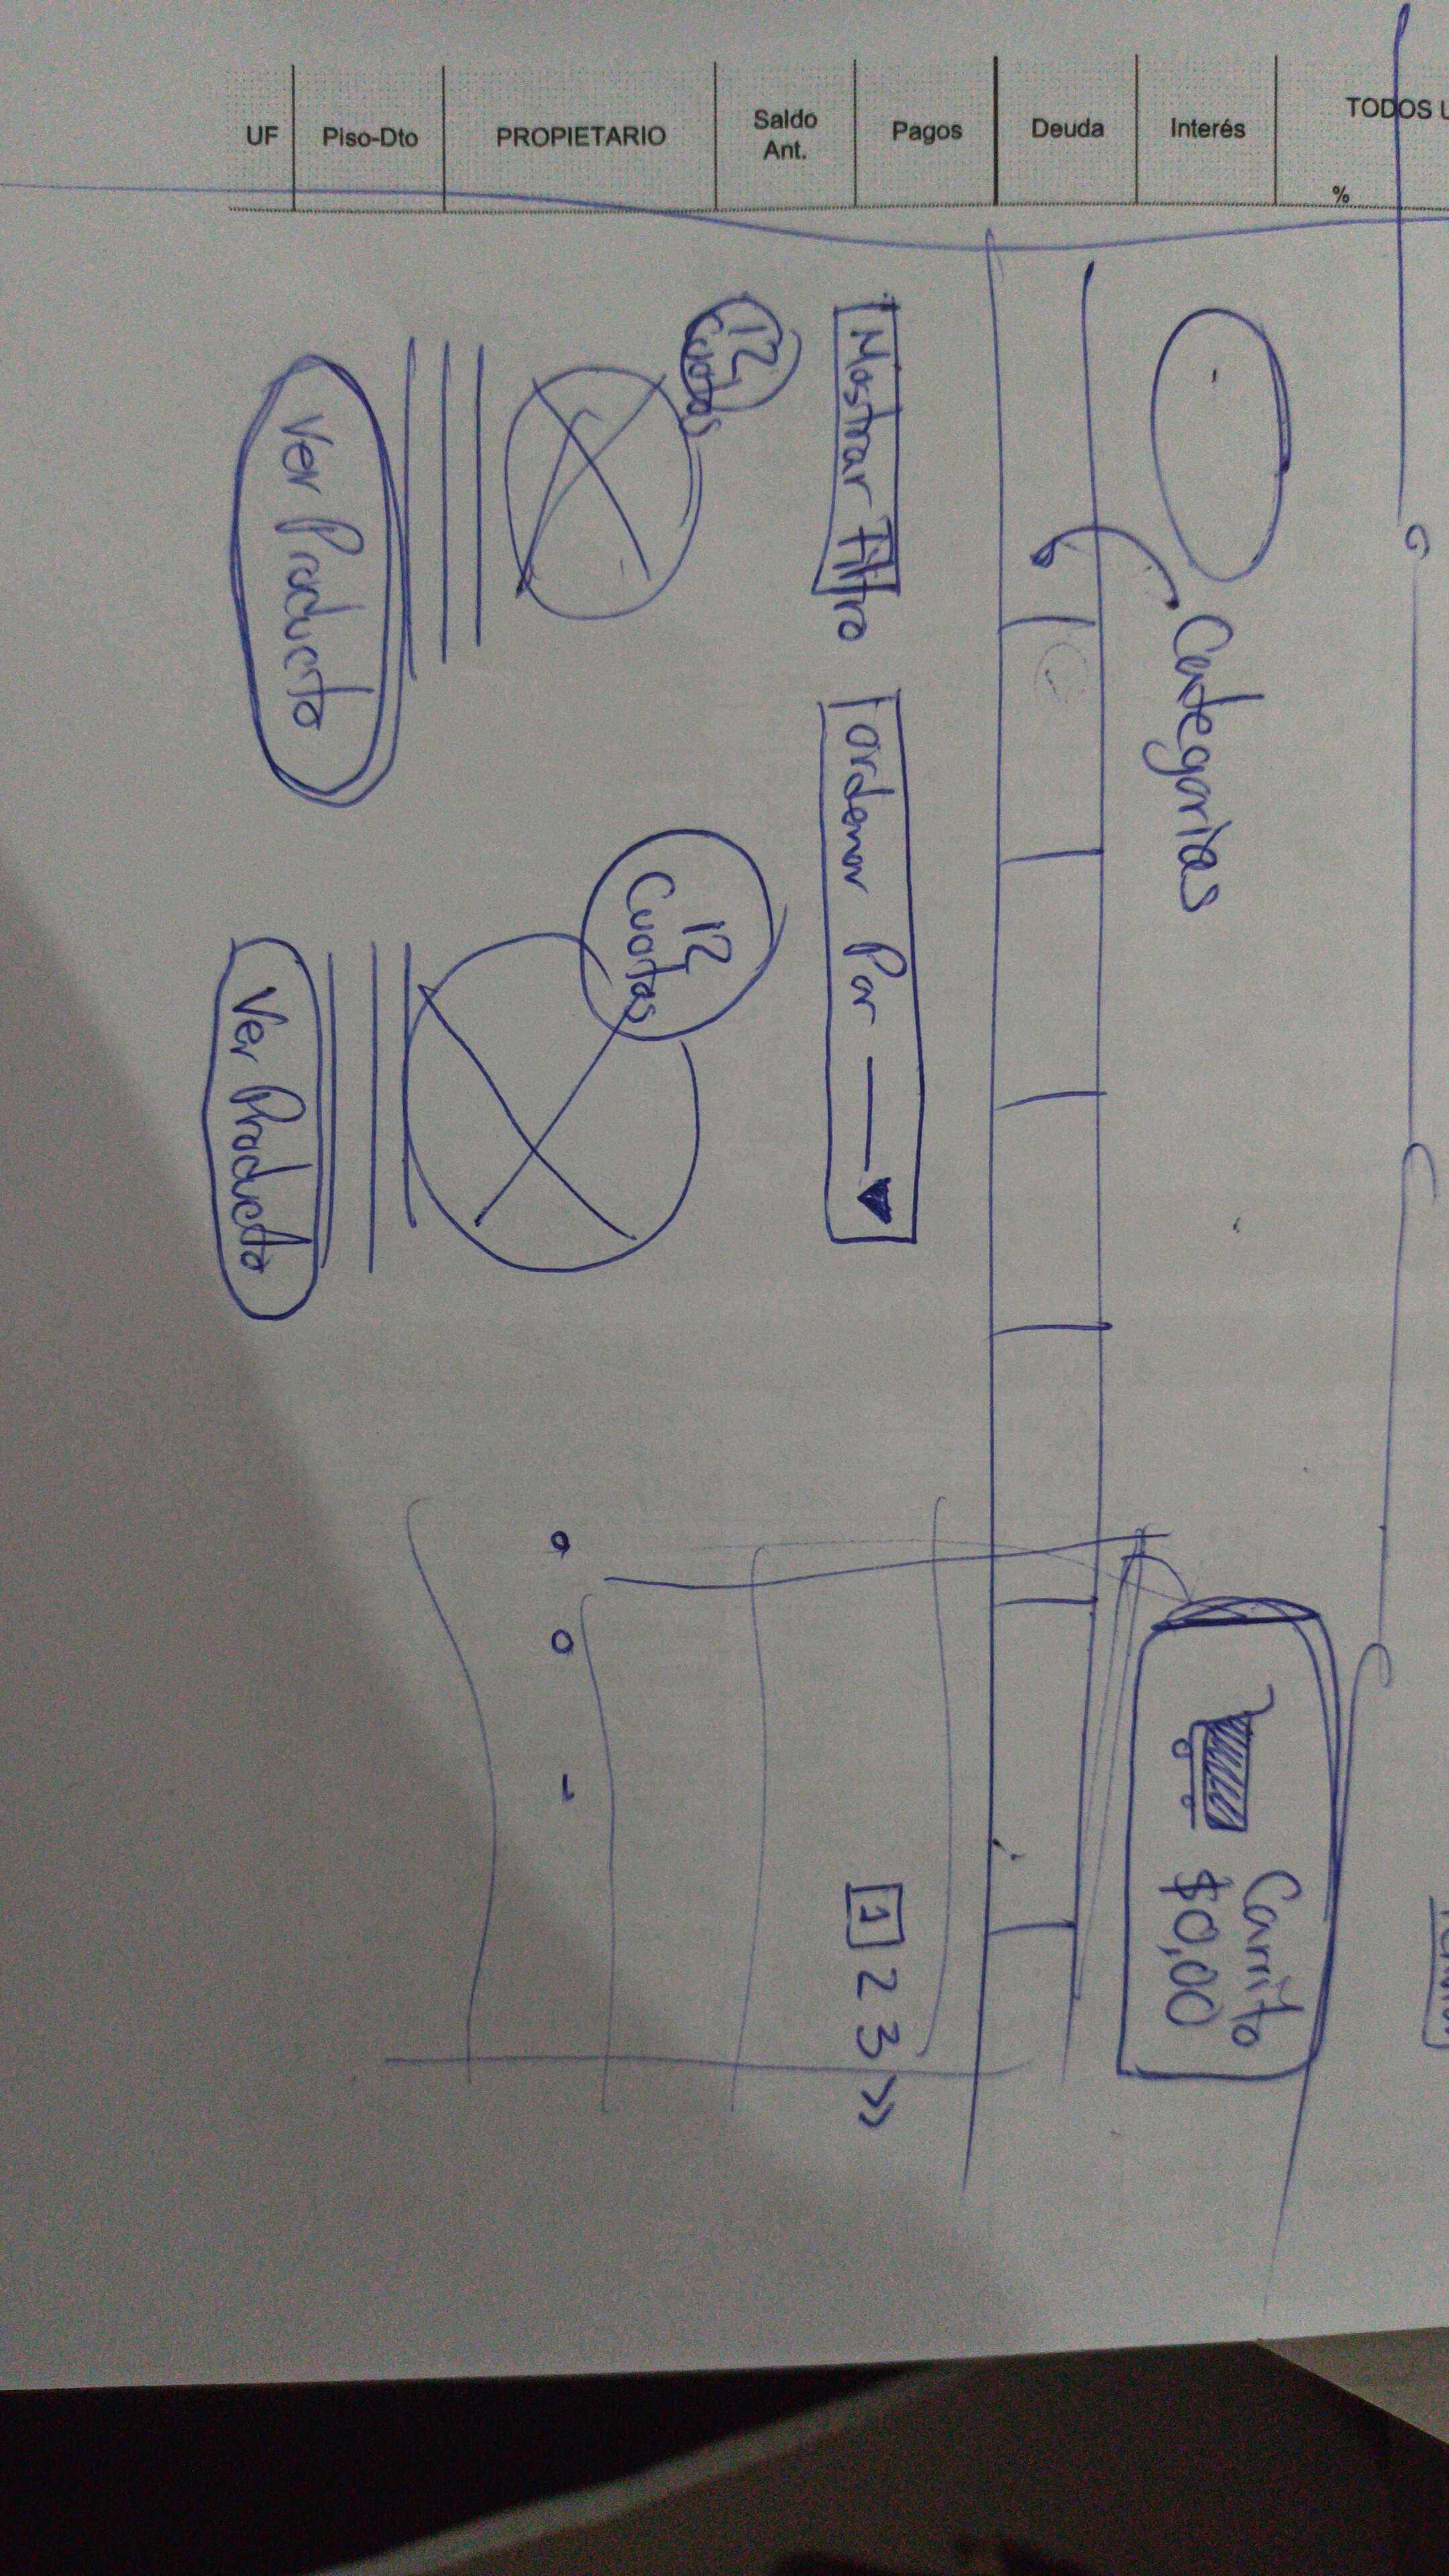 UF Piso-Dto PROPIETARIO Saldo Ant. Pagos Deuda Interés TODOS
%
Carrito
$0,00
Categorias
Mostrar Filtro
Ordenar Por
1 2 3 »
12
Cuotas
12
Cuotas
Ver Producto
Ver Producto